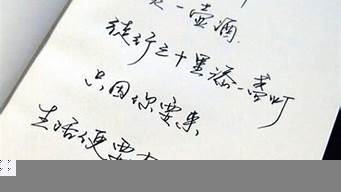 一壶酒
徒行三十里添一盏灯
只因你要来
生活便要